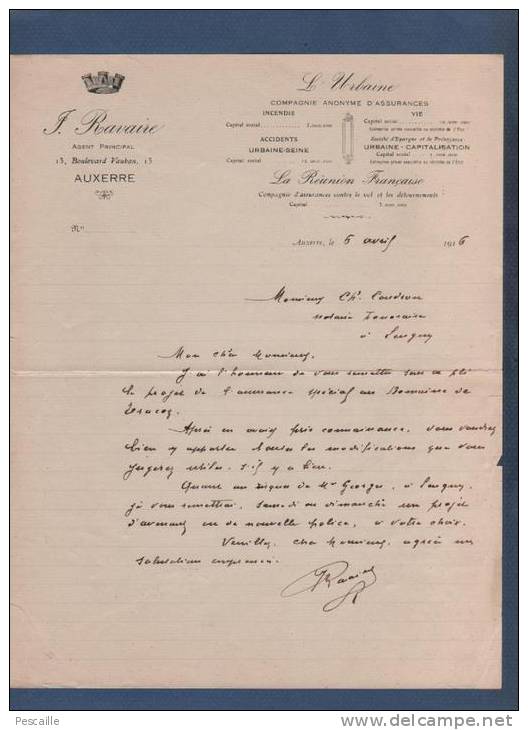 J. Ravaire
AGENT PRINCIPAL
13, Boulevard Vauban, 13
AUXERRE
N°
L'Urbaine
COMPAGNIE ANONYME D'ASSURANCES
INCENDIE
Capital social
ACCIDENTS
URBAINE-SEINE
Capital social
VIE
Capital social
Société d'Epargne et de Prévoyance
URBAINE-CAPITALISATION
Capital social
La Réunion Française
Compagnie d'assurances contre le vol et les détournements
Capital
Auxerre, le 6 avril 1916
Monsieur Ch.
notaire honoraire
à
Mon cher Monsieur,
J'ai l'honneur de vous remettre sous ce pli
le projet de l'assurance spécial au Domaine de
Après en avoir pris connaissance, vous voudrez
bien y apporter toutes les modifications que vous
jugerez utiles s'il y a lieu.
Quant au risque de Mr Georges, à
je vous remettrai, samedi ou dimanche un projet
d'avenant ou de nouvelle police, à votre choix.
Veuillez, cher Monsieur, agréer mes
salutations empressées.
Pescaille
www.delcampe.net